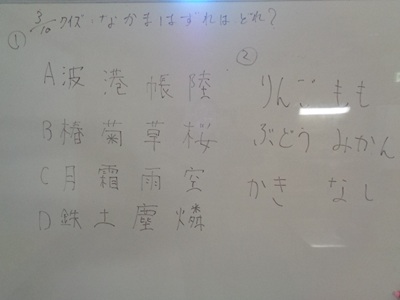 3/10 クイズ・なかまはずれはどれ?
①
A 波 港 帳 陸
B 椿 菊 草 桜
C 月 霜 雨 空
D 鉄 土 塵 燐
②
りんご もも
ぶどう みかん
かき なし